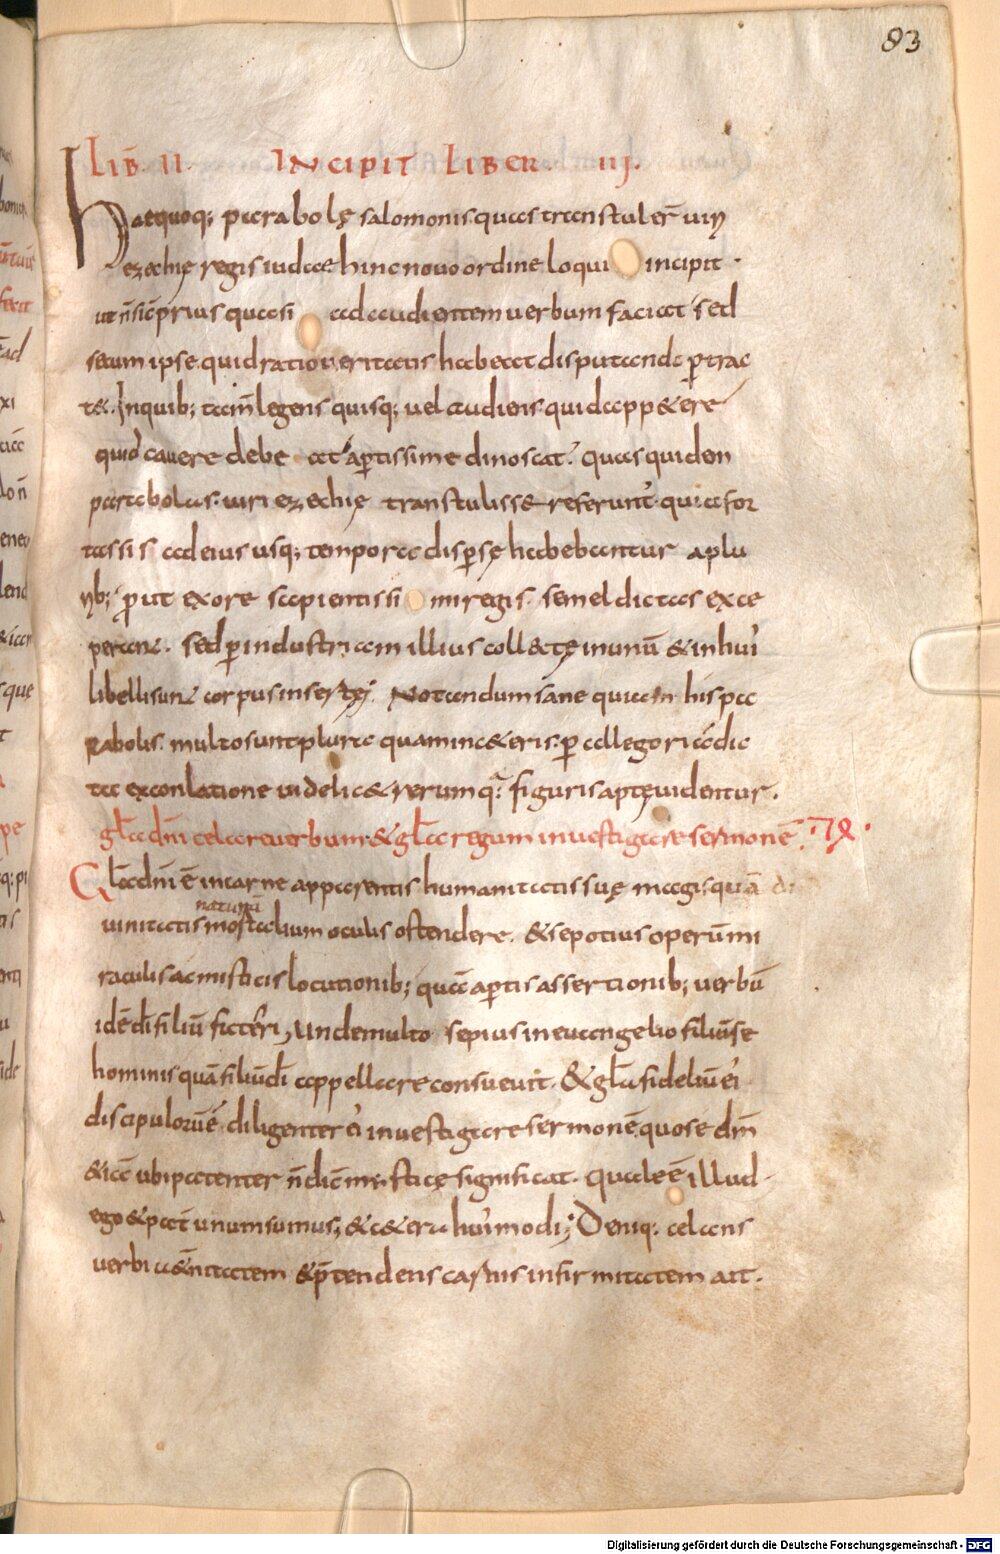 83
LIB II INCIPIT LIBER III.
Haequoq; parabolę salomonis quas transtuler̄ uiri
ezechię regis iudae hinc nouo ordine loqui incipit ·
ut n̄ sic̄ prius quasi ad audientem uerbum faciat sed
secum ipse quid ratio ueritatis habeat disputando ꝑtrac
t&. Inquib; tam̄ legens quisq; uel audiens quid app&ere
quid cauere debeat aꝑtissime dinoscat. quas quidem
parabolas uiri ezechię transtulisse referunt̄ quia for
tassis ad eius usq; tempora disꝑsę habebantur aplu
rib; ꝓut exore sapientissimi regis semel dictas exce
perant. sed ꝑ industriam illius coll&tę inunū & in hui'
libelli sunt corpus insertę. Notandum sane quia in his pa
rabolis multo sunt plura quam in c&eris. ꝑ allegoriā dic
ta exconlatione uidelic& rerum q; figuris aptę uidentur.
gl̄a dn̄i celare uerbum & gl̄a regum inuestigare sermonē. 
Gl̄a dn̄i ē incarne apparentis humanitatis suę magis quā di
naturā
uinitatis mortalium oculis ostendere. & se potius operū mi
raculis ac misticis locutionib; quā aꝑtis assertionib; uerbū
idē dī filiū fateri, unde multo sepius in euangelio filiū se
hominis quā filiū dī appellare consueuit. & gl̄a fideliū ei'
discipulorū ē diligenter ei' inuestigare sermonē quo se dm̄
&iā ubi patenter n̄ dic̄ misticę significat. quale ē illud
ego & pat̄ unum sumus, & c&era hui'modi; Deniq; celans
uerbi &n̄itatem & p̄tendens carnis infirmitatem ait.
Digitalisierung gefördert durch die Deutsche Forschungsgemeinschaft - DFG